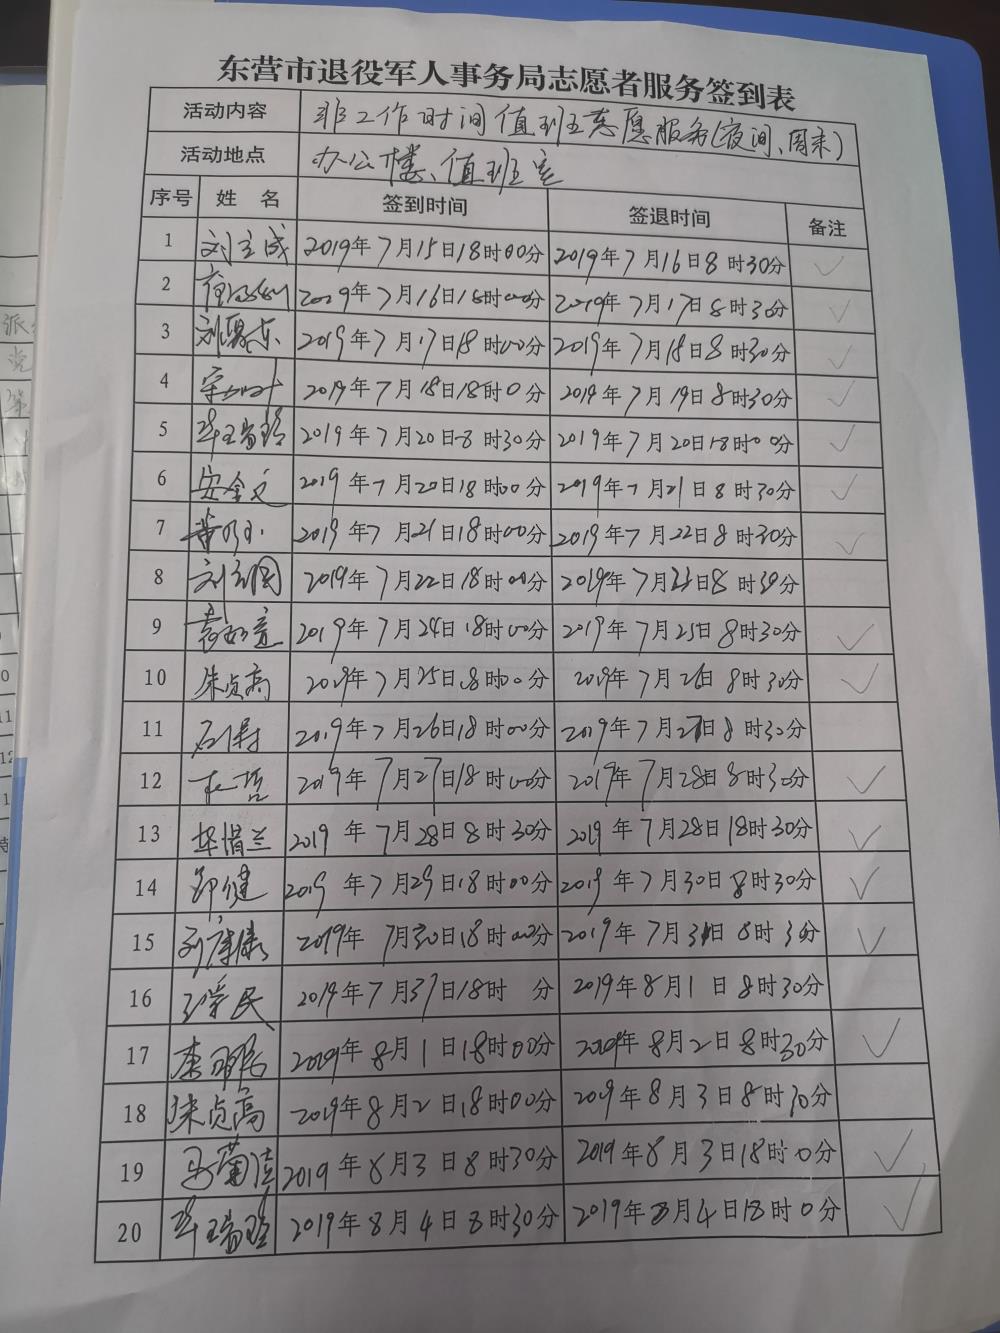 东营市退役军人事务局志愿者服务签到表
活动内容 非工作时间值班志愿服务(夜间、周末)
活动地点 办公楼、值班室
序号 姓 名 签到时间 签退时间 备注
1 刘立成 2019年7月15日18时00分 2019年7月16日8时30分 ✓
2 2019年7月16日18时00分 2019年7月17日8时30分 ✓
3 2019年7月17日18时00分 2019年7月18日8时30分 ✓
4 2019年7月18日18时0分 2019年7月19日8时30分 ✓
5 2019年7月20日8时30分 2019年7月20日18时00分 ✓
6 安全文 2019年7月20日18时00分 2019年7月21日8时30分 ✓
7 2019年7月21日18时00分 2019年7月22日8时30分 ✓
8 刘立国 2019年7月22日18时00分 2019年7月23日8时30分
9 2019年7月24日18时00分 2019年7月25日8时30分 ✓
10 朱贞高 2019年7月25日18时00分 2019年7月26日8时30分 ✓
11 2019年7月26日18时00分 2019年7月27日8时30分
12 2019年7月27日18时00分 2019年7月28日8时30分 ✓
13 2019年7月28日8时30分 2019年7月28日18时30分 ✓
14 邹健 2019年7月29日18时00分 2019年7月30日8时30分 ✓
15 2019年7月30日18时00分 2019年7月31日8时30分 ✓
16 2019年7月31日18时 分 2019年8月1日8时30分
17 2019年8月1日18时00分 2019年8月2日8时30分 ✓
18 朱贞高 2019年8月2日18时00分 2019年8月3日8时30分
19 2019年8月3日8时30分 2019年8月3日18时0分 ✓
20 2019年8月4日8时30分 2019年8月4日18时0分 ✓